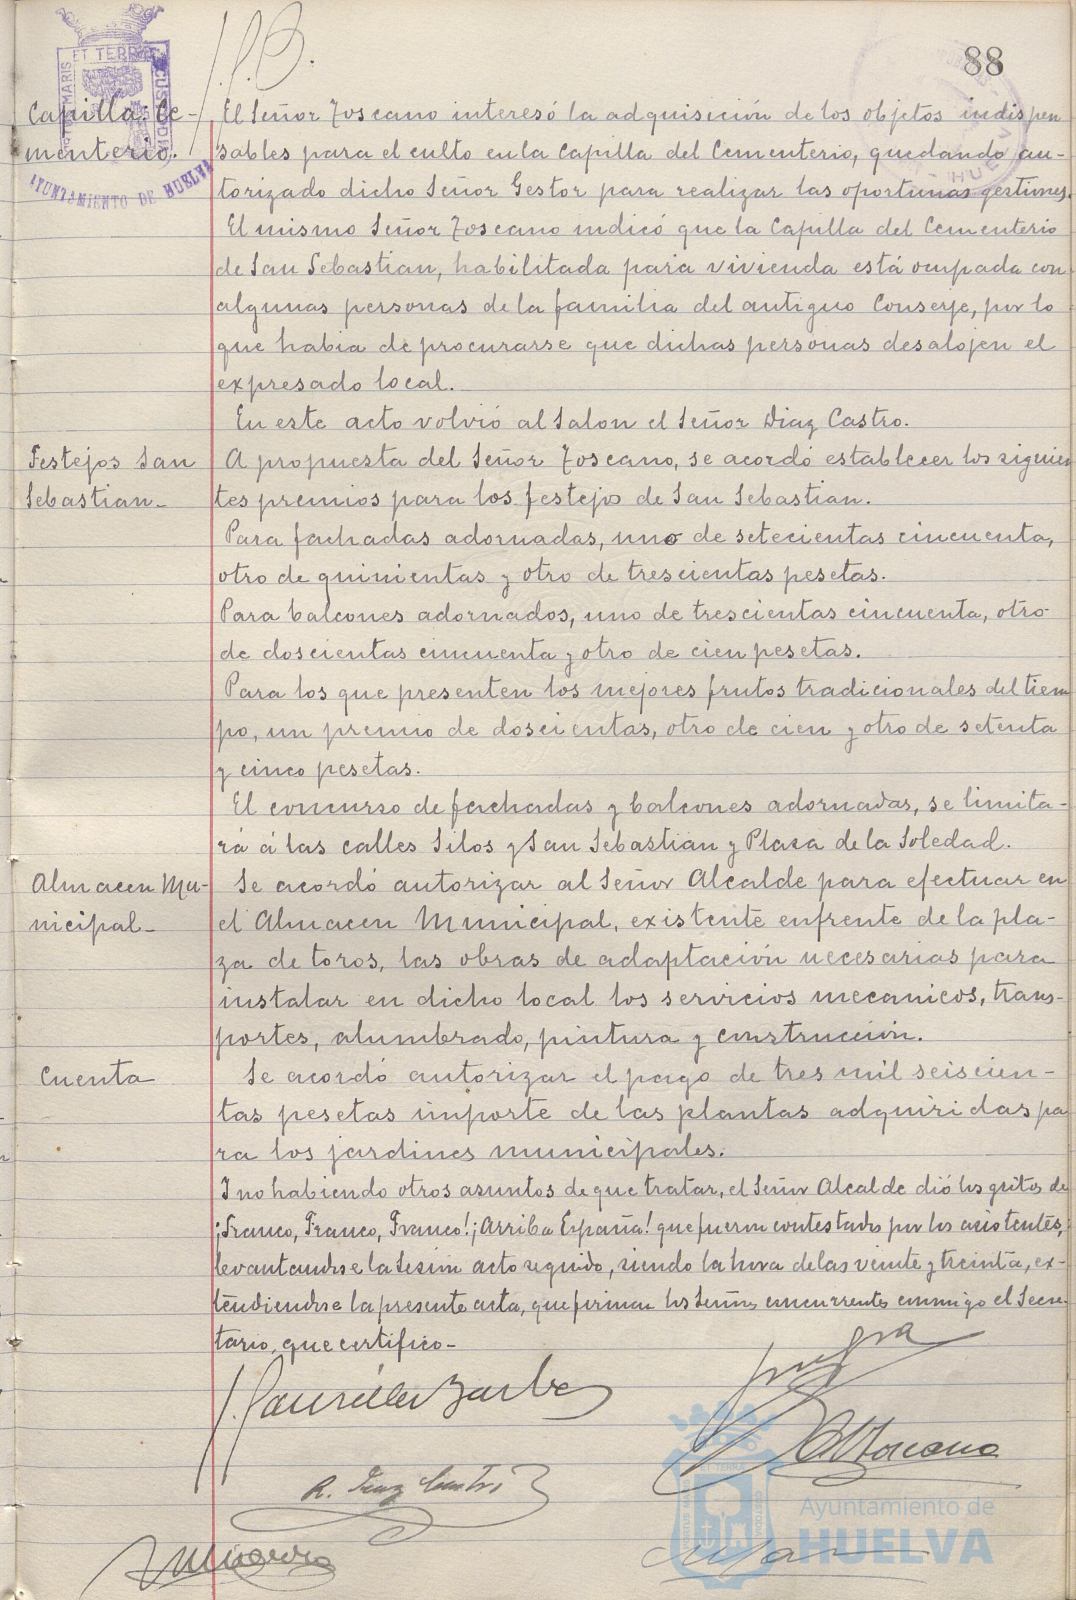 88
Capilla Ce-
menterio.
AYUNTAMIENTO DE HUELVA
El Señor Toscano interesó la adquisición de los objetos indispen
sables para el culto en la Capilla del Cementerio, quedando au-
torizado dicho Señor Gestor para realizar las oportunas gestiones.
El mismo Señor Toscano indicó que la Capilla del Cementerio
de San Sebastian, habilitada para vivienda está ocupada con
algunas personas de la familia del antiguo Conserje, por lo
que habia de procurarse que dichas personas desalojen el
expresado local.
En este acto volvió al Salon el Señor Diaz Castro.
Festejos San
Sebastian-
A propuesta del Señor Toscano, se acordó establecer los siguien
tes premios para los festejos de San Sebastian.
Para fachadas adornadas, uno de setecientas cincuenta,
otro de quinientas y otro de trescientas pesetas.
Para balcones adornados, uno de trescientas cincuenta, otro
de doscientas cincuenta y otro de cien pesetas.
Para los que presenten los mejores frutos tradicionales del tiem
po, un premio de doscientas, otro de cien y otro de setenta
y cinco pesetas.
El concurso de fachadas y balcones adornadas, se limita-
rá á las calles Silos y San Sebastian y Plaza de la Soledad.
Almacen Mu-
nicipal-
Se acordó autorizar al Señor Alcalde para efectuar en
el Almacen Municipal, existente enfrente de la pla-
za de toros, las obras de adaptación necesarias para
instalar en dicho local los servicios mecanicos, trans-
portes, alumbrado, pintura y construcción.
Cuenta
Se acordó autorizar el pago de tres mil seiscien-
tas pesetas importe de las plantas adquiridas pa
ra los jardines municipales.
I no habiendo otros asuntos de que tratar, el Señor Alcalde dió los gritos de
¡Franco, Franco, Franco! ¡Arriba España! que fueron contestados por los asistentes,
levantandose la sesión acto seguido, siendo la hora de las veinte y treinta, ex-
tendiendose la presente acta, que firman los Señores concurrentes conmigo el Secre-
tario, que certifico-
R. Diaz Castro
Ayuntamiento de
HUELVA